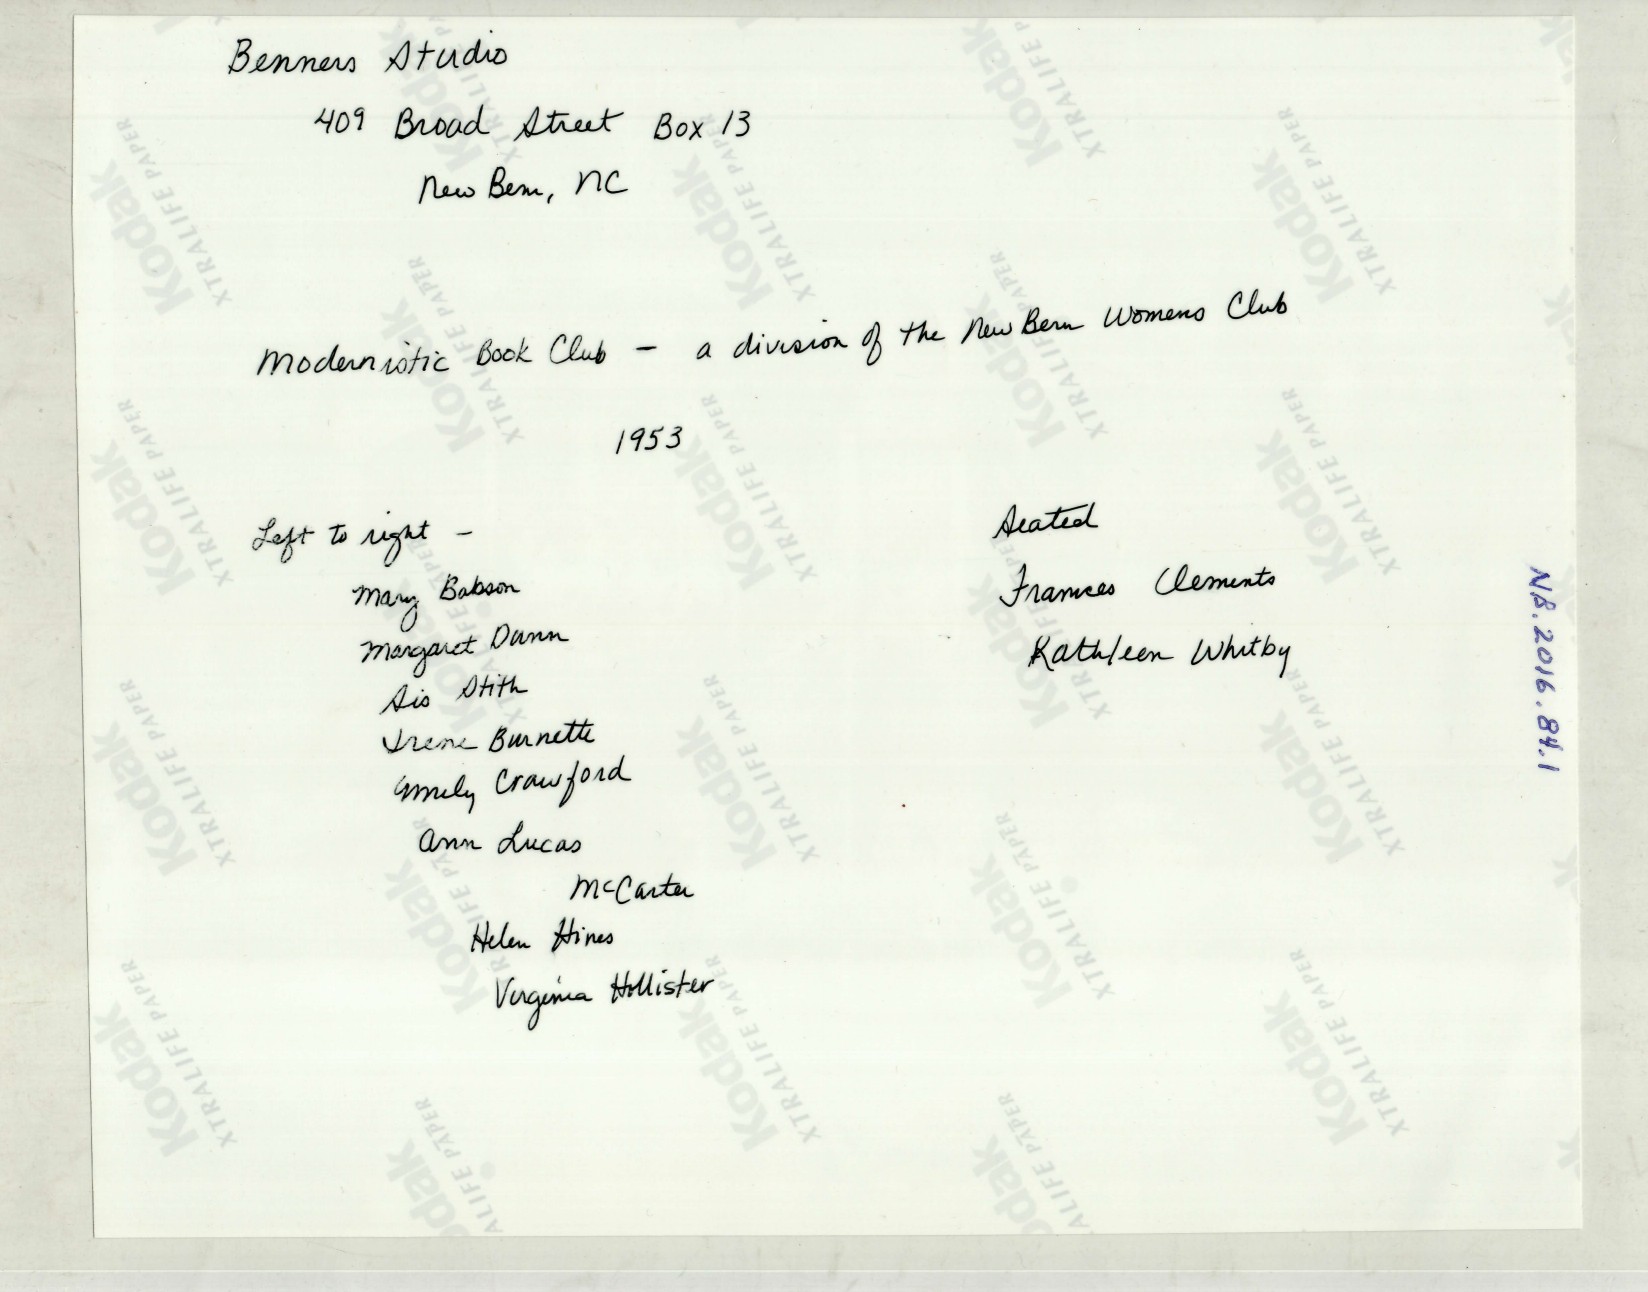 Benners Studio
409 Broad Street Box 13
New Bern, NC
Modernistic Book Club - a division of the New Bern Womens Club
1953
Left to right -
Mary Babson
Margaret Dunn
Sis Stith
Irene Burnette
Emily Crawford
Ann Lucas
McCarter
Helen Hines
Virginia Hollister
Seated
Frances Clements
Kathleen Whitby
NB.2016.84.1
Kodak
XTRALIFE PAPER